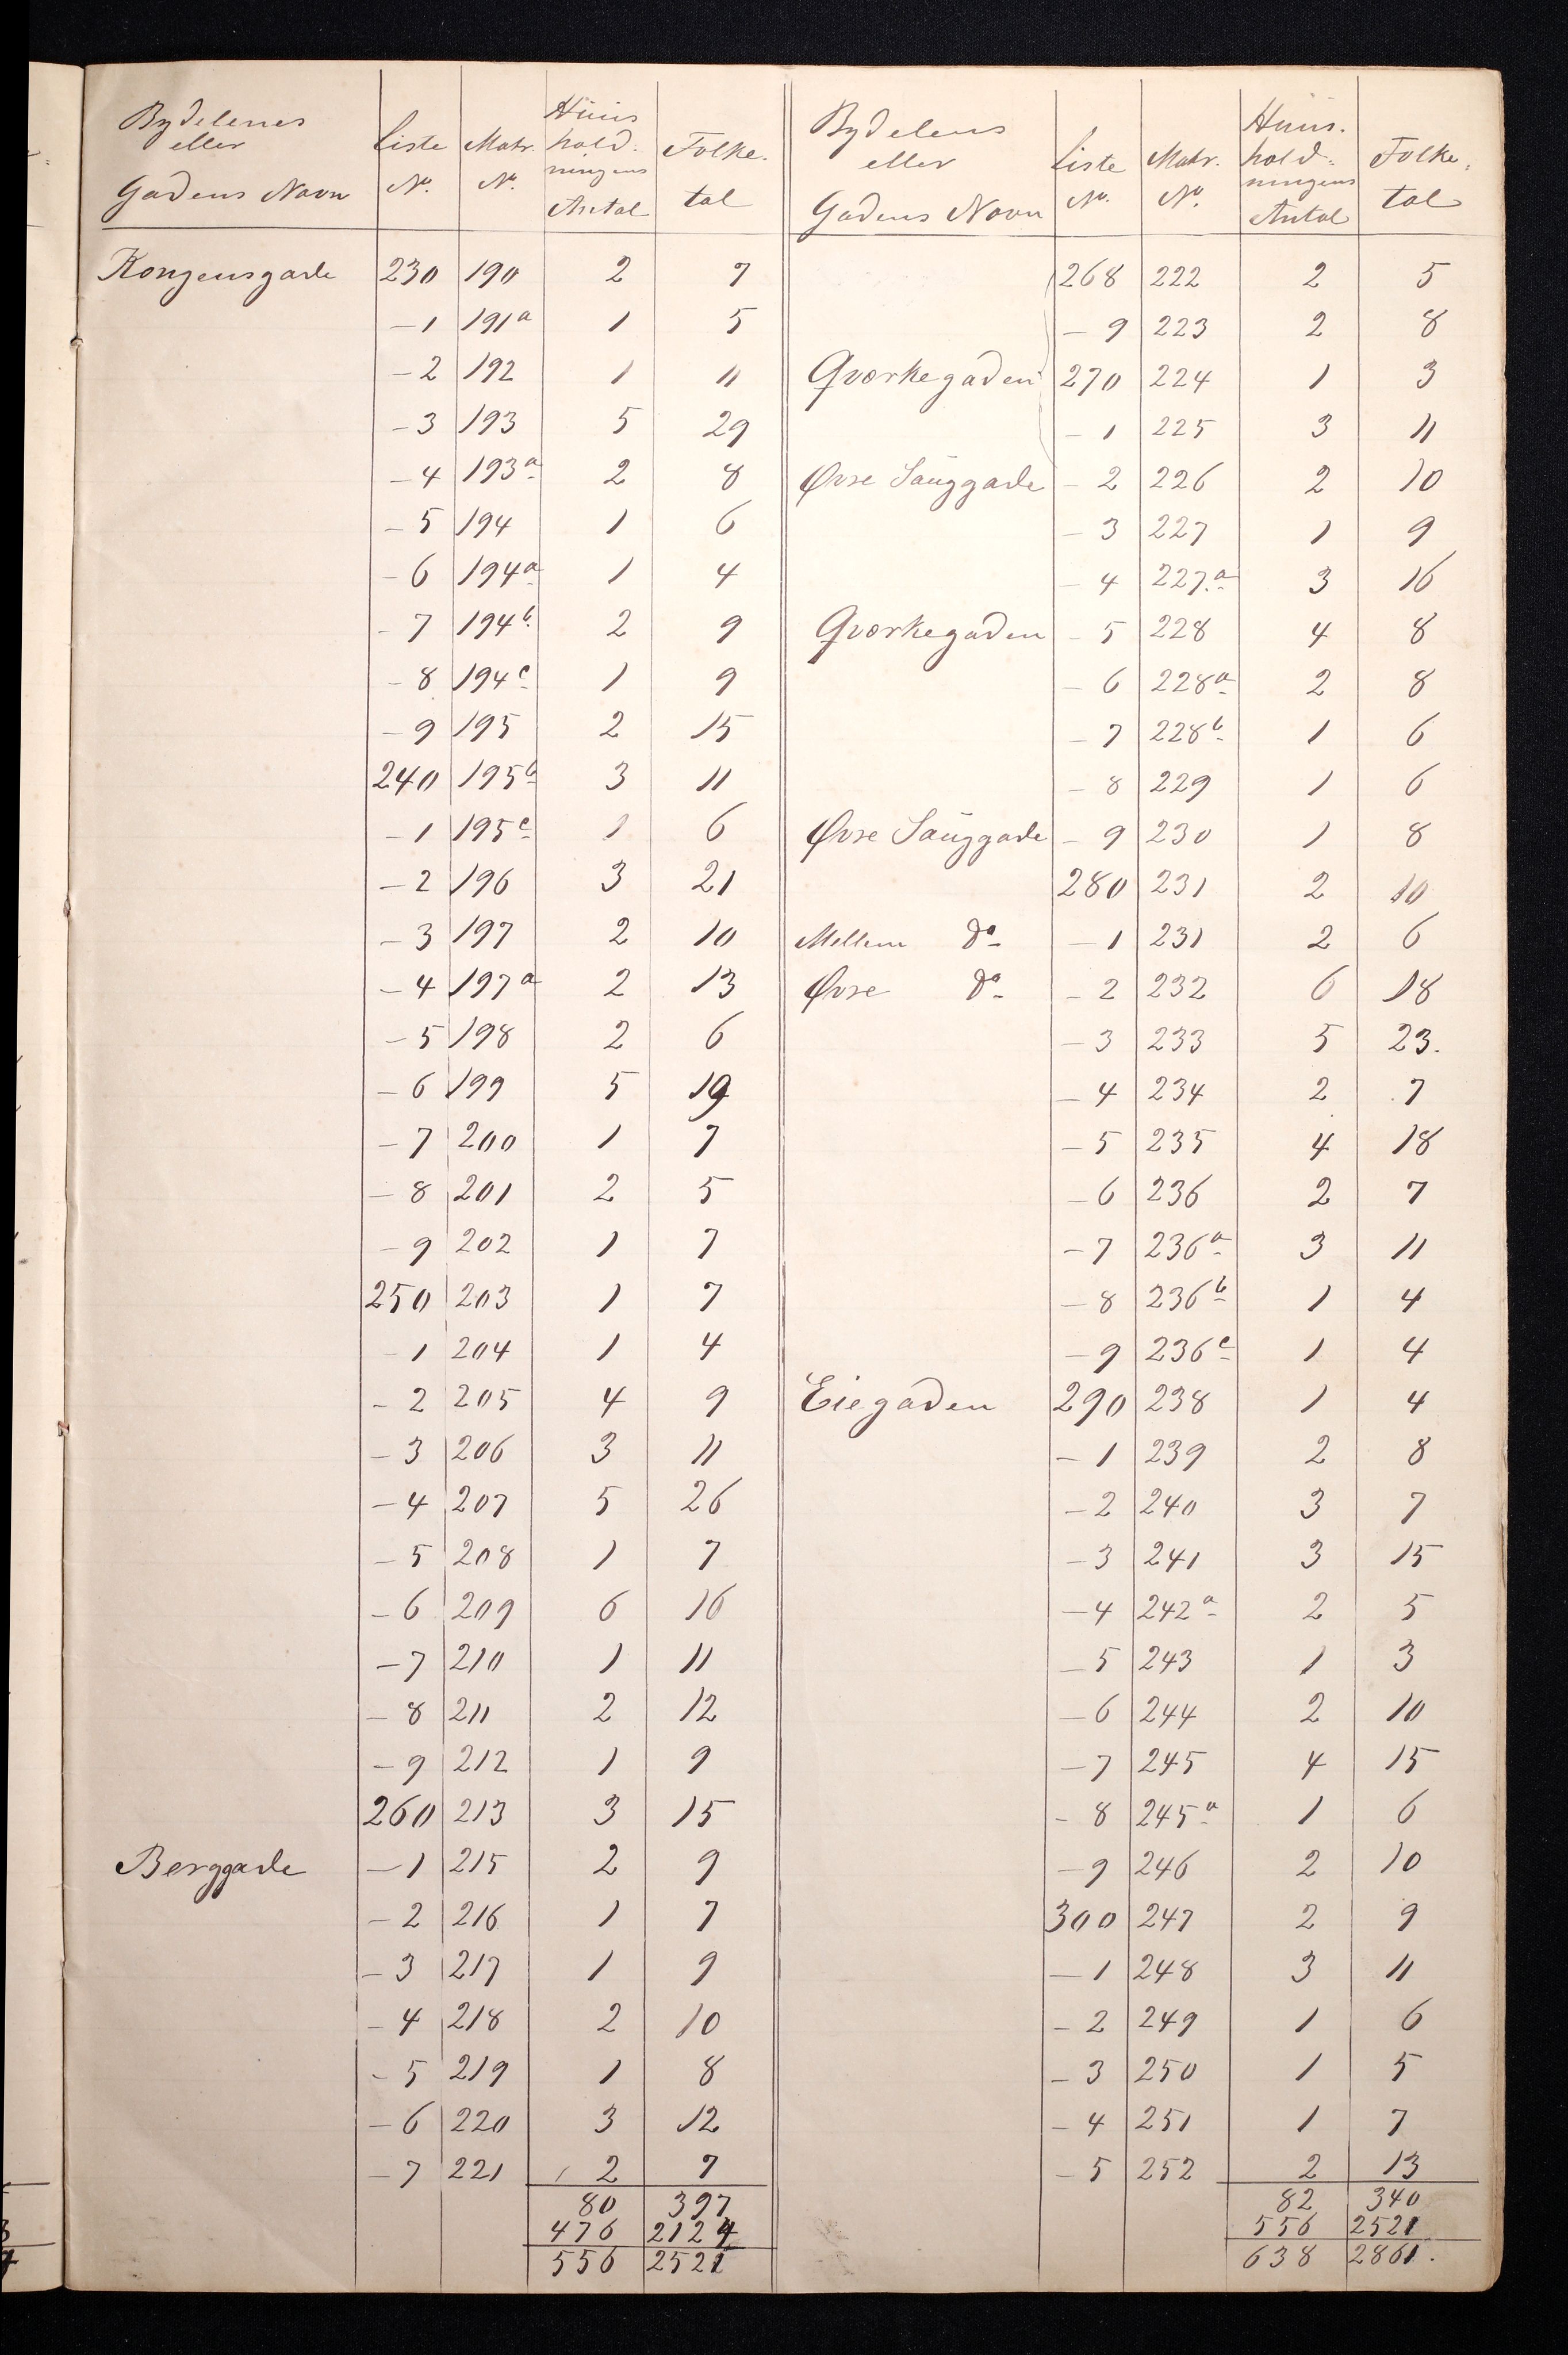 Bydelenes eller Gadens Navn | Liste No. | Matr. No. | Huus hold- ningens Antal | Folke- tal
Kongensgade | 230 | 190 | 2 | 7
– 1 | 191a | 1 | 5
– 2 | 192 | 1 | 11
– 3 | 193 | 5 | 29
– 4 | 193a | 2 | 8
– 5 | 194 | 1 | 6
– 6 | 194a | 1 | 4
– 7 | 194b | 2 | 9
– 8 | 194c | 1 | 9
– 9 | 195 | 2 | 15
240 | 195b | 3 | 11
– 1 | 195c | 1 | 6
– 2 | 196 | 3 | 21
– 3 | 197 | 2 | 10
– 4 | 197a | 2 | 13
– 5 | 198 | 2 | 6
– 6 | 199 | 5 | 19
– 7 | 200 | 1 | 7
– 8 | 201 | 2 | 5
– 9 | 202 | 1 | 7
250 | 203 | 1 | 7
– 1 | 204 | 1 | 4
– 2 | 205 | 4 | 9
– 3 | 206 | 3 | 11
– 4 | 207 | 5 | 26
– 5 | 208 | 1 | 7
– 6 | 209 | 6 | 16
– 7 | 210 | 1 | 11
– 8 | 211 | 2 | 12
– 9 | 212 | 1 | 9
260 | 213 | 3 | 15
Berggade | – 1 | 215 | 2 | 9
– 2 | 216 | 1 | 7
– 3 | 217 | 1 | 9
– 4 | 218 | 2 | 10
– 5 | 219 | 1 | 8
– 6 | 220 | 3 | 12
– 7 | 221 | 2 | 7
80 | 397
476 | 2124
556 | 2521
Bydelens eller Gadens Navn | Liste No. | Matr. No. | Huus. hold- ningens Antal | Folke- tal
268 | 222 | 2 | 5
– 9 | 223 | 2 | 8
Qværkegaden | 270 | 224 | 1 | 3
– 1 | 225 | 3 | 11
Øvre Langgade | – 2 | 226 | 2 | 10
– 3 | 227 | 1 | 9
– 4 | 227.a | 3 | 16
Qværkegaden | – 5 | 228 | 4 | 8
– 6 | 228a | 2 | 8
– 7 | 228b | 1 | 6
– 8 | 229 | 1 | 6
Øvre Langgade | – 9 | 230 | 1 | 8
280 | 231 | 2 | 10
Mellem do | – 1 | 231 | 2 | 6
Øvre do | – 2 | 232 | 6 | 18
– 3 | 233 | 5 | 23.
– 4 | 234 | 2 | 7
– 5 | 235 | 4 | 18
– 6 | 236 | 2 | 7
– 7 | 236a | 3 | 11
– 8 | 236b | 1 | 4
– 9 | 236c | 1 | 4
Eiegaden | 290 | 238 | 1 | 4
– 1 | 239 | 2 | 8
– 2 | 240 | 3 | 7
– 3 | 241 | 3 | 15
– 4 | 242a | 2 | 5
– 5 | 243 | 1 | 3
– 6 | 244 | 2 | 10
– 7 | 245 | 4 | 15
– 8 | 245a | 1 | 6
– 9 | 246 | 2 | 10
300 | 247 | 2 | 9
– 1 | 248 | 3 | 11
– 2 | 249 | 1 | 6
– 3 | 250 | 1 | 5
– 4 | 251 | 1 | 7
– 5 | 252 | 2 | 13
82 | 340
556 | 2521
638 | 2861.